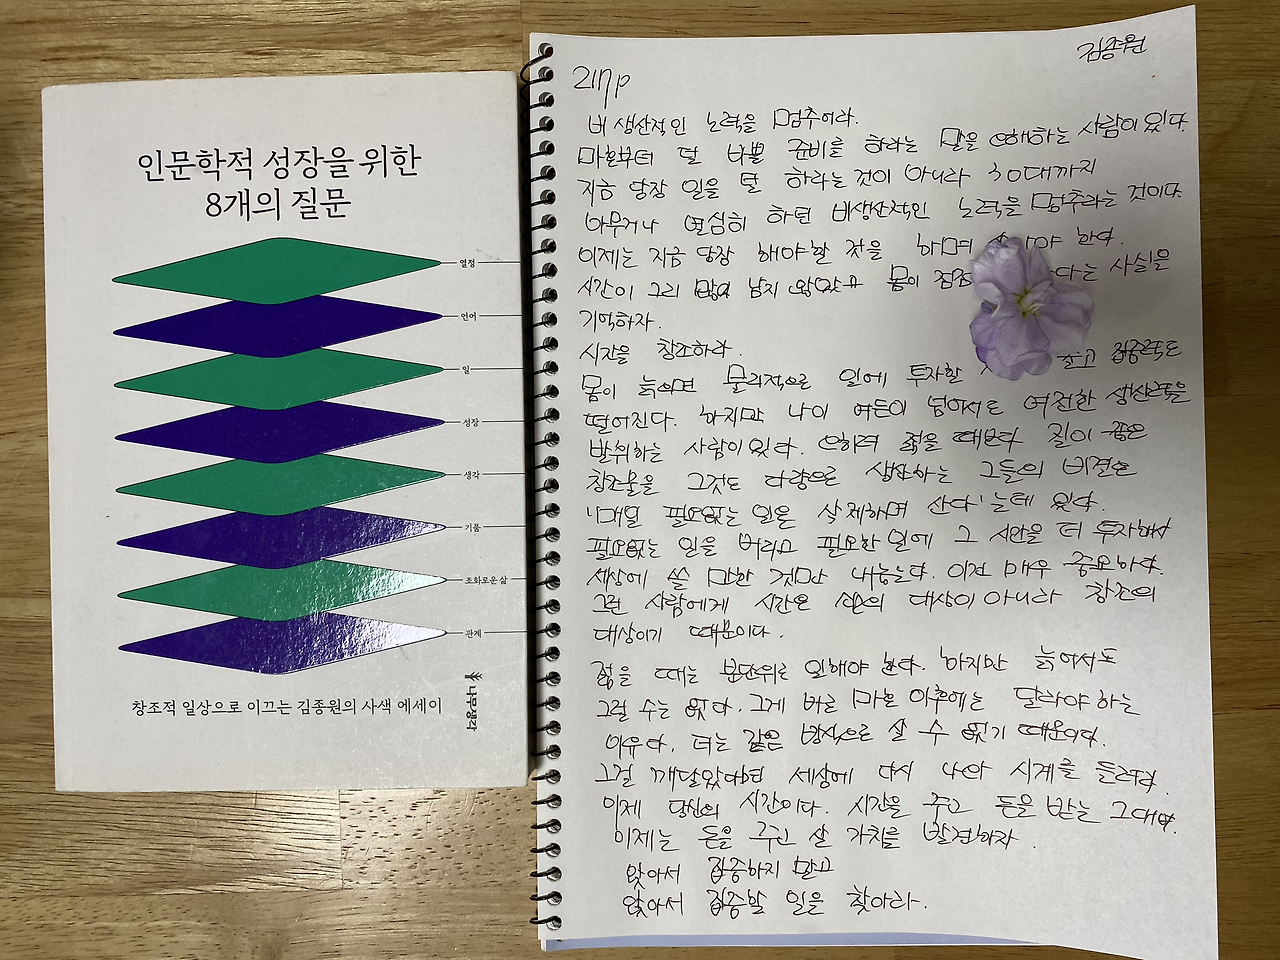 인문학적 성장을 위한
8개의 질문
열정
언어
일
성장
생각
기품
조화로운 삶
관계
창조적 일상으로 이끄는 김종원의 사색 에세이
나무생각
김종원
217p
비생산적인 노력을 멈추어라.
마흔부터 덜 나쁠 준비를 하라는 말을 오해하는 사람이 있다.
지금 당장 일을 덜 하라는 것이 아니라 30대까지
아무거나 열심히 하던 비생산적인 노력을 멈추라는 것이다.
이제는 지금 당장 해야할 것을 하며 야 한다.
시간이 그리 많이 남지 않았고 몸이 점점 다는 사실을
기억하자.
시간을 창조하라.
몸이 늙으면 물리적으로 일에 투자할 줄고 집중력도
떨어진다. 하지만 나이 여든이 넘어서도 여전한 생산력을
발휘하는 사람이 있다. 오히려 젊을 때보다 질이 좋은
창조물을 그것도 다량으로 생산하는 그들의 비결은
'매일 필요없는 일을 삭제하며 산다'는데 있다.
필요없는 일을 버리고 필요한 일에 그 시간을 더 투자해서
세상에 쓸 만한 것만 내놓는다. 이건 매우 중요하다.
그런 사람에게 시간은 의 대상이 아니라 창조의
대상이기 때문이다.
젊을 때는 분단위로 일해야 한다. 하지만 늙어서도
그럴 수는 없다. 그게 바로 마흔 이후에는 달라야 하는
이유다. 더는 같은 방식으로 살 수 없기 때문이다.
그걸 깨달았다면 세상에 다시 나의 시계를 돌려라.
이제 당신의 시간이다. 시간을 주고 돈을 받는 그대여.
이제는 돈을 주고 살 가치를 발견하자.
앉아서 집중하지 말고
앉아서 집중할 일을 찾아라.